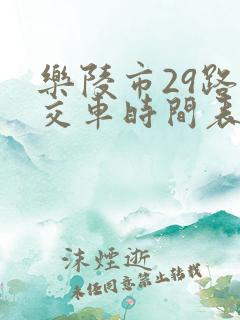 樂陵市29路
交車時間表
沫煙逝
未经同意禁止转载